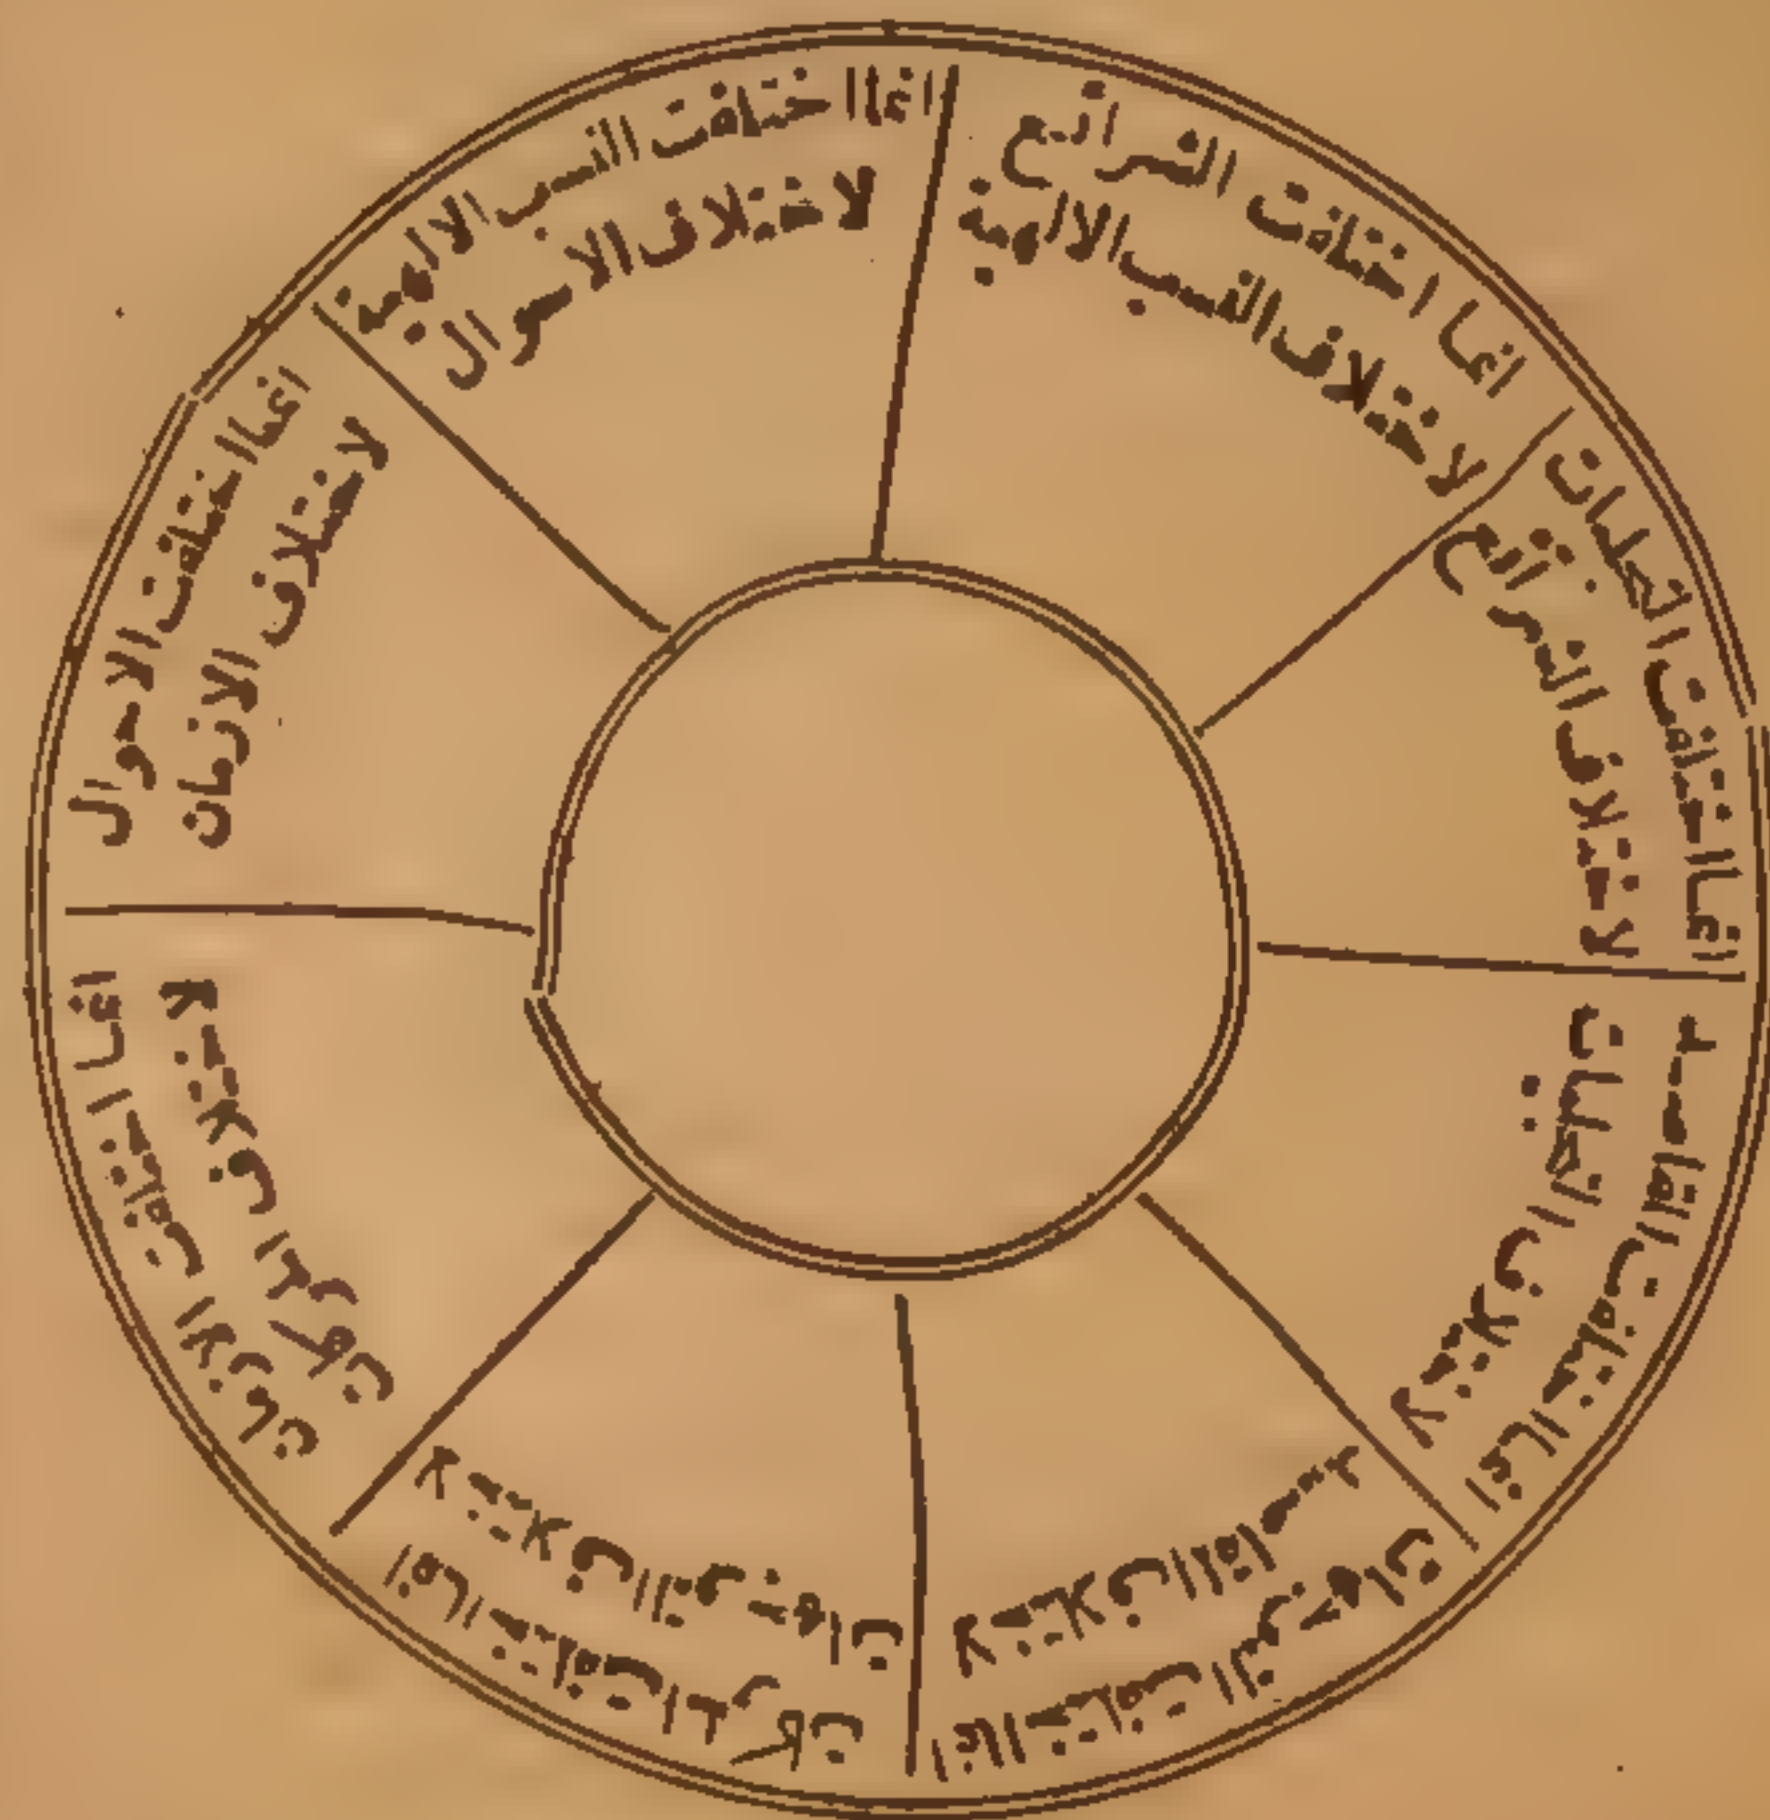 انما اختلفت الشرائع
لاختلاف النسب الالهية
انما اختلفت النسب الالهية
لاختلاف الاحوال
انما اختلفت الاحوال
لاختلاف الازمان
انما اختلفت الازمان
لاختلاف الحركات
انما اختلفت الحركات
لاختلاف التوجهات
انما اختلفت التوجهات
لاختلاف المقاصد
انما اختلفت المقاصد
لاختلاف التجليات
انما اختلفت التجليات
لاختلاف الشرائع